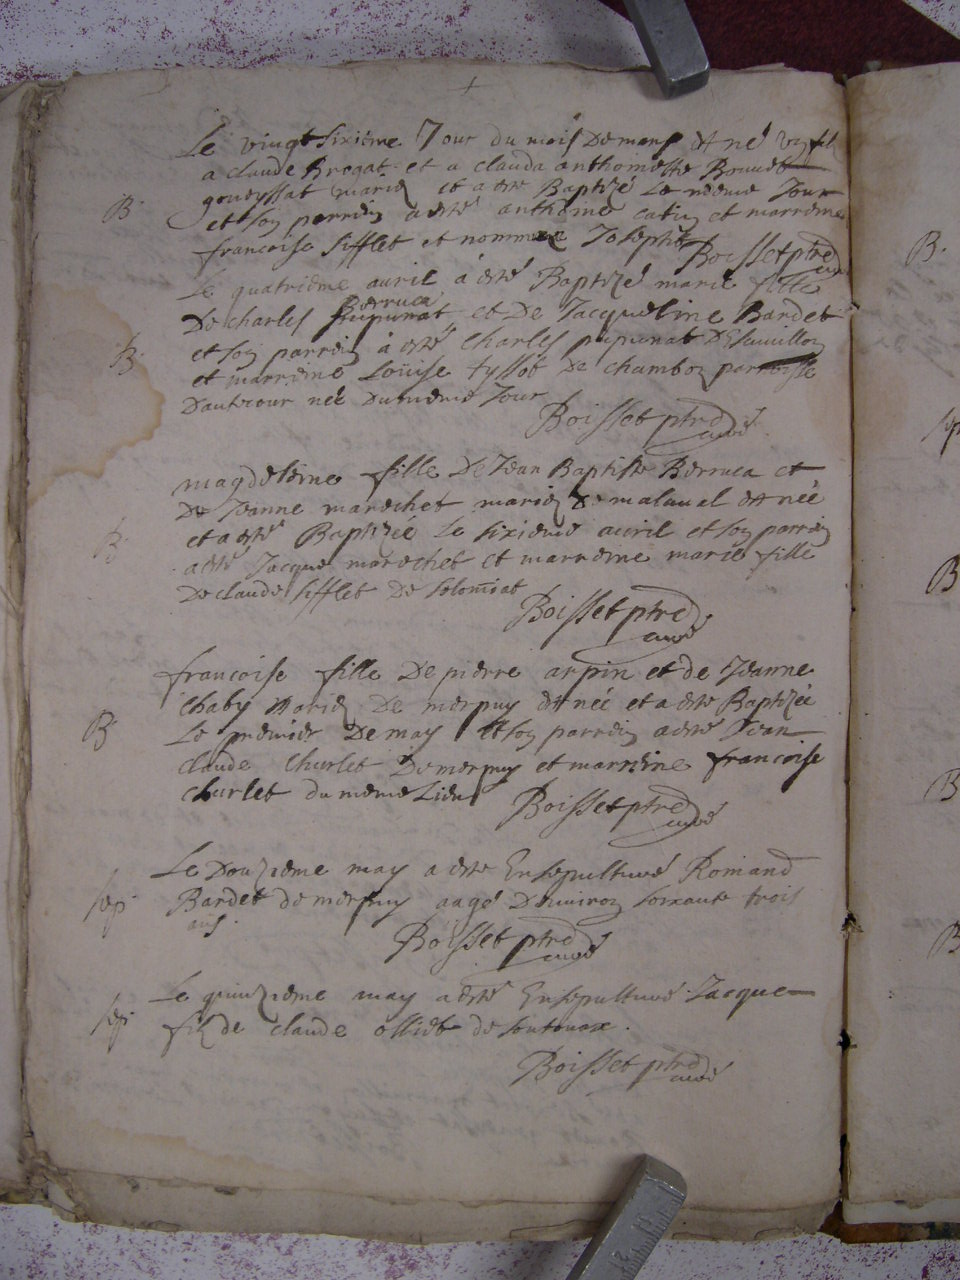 Le vingt sixième Jour du mois de mars est né un fil
a claude Brogat et a clauda anthoinette Bouvet
goueyssat mariez et a esté Baptizé le mesme Jour
B. et son parrein a esté anthoine catin et marreine
francoise sifflet et nommé Joseph Boisset ptre
curé
Le quatrième auril à esté Baptizé marie fille
Berruca
De charles pupunat et De Jacqueline Bardet
B. et son parrein à esté Charles pupunat De
et marreine Louise tyssot De chambon parroisse
D'autrour née Du mesme Jour
Boisset ptre
curé
magdeleine fille De Jean Baptiste Berruca et
De Jeanne marechet mariez De malaval est née
B. et a esté Baptizée le sixieme auril et son parrein
a esté Jacque marechet et marreine marie fille
De claude sifflet De solomiat
Boisset ptre
curé
francoise fille De pierre arpin et de Jeanne
Chaby mariez De merpuy est née et a esté Baptizée
B. Le premier De may et son parrein a esté Jean
claude Churlet De merpuy et marreine francoise
Churlet du mesme Lieu Boisset ptre
curé
Le Douzième may a esté Ensepulturé Romand
sep. Bardet de merpuy aagé D'environ soixante trois
ans.
Boisset ptre
curé
Le quinzième may a esté Ensepulturé Jacque
sep. filz de claude olliet de
Boisset ptre
curé
B.
sep
B
B
B